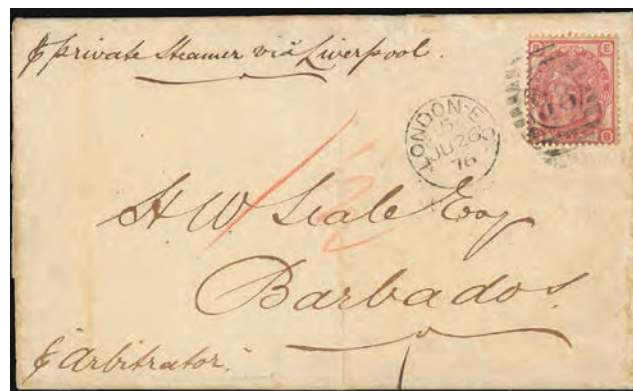 ₱ private Steamer via Liverpool.
LONDON·E.C
JU 26
76
H W Seale Esq
Barbados.
₱ "Arbitrator."